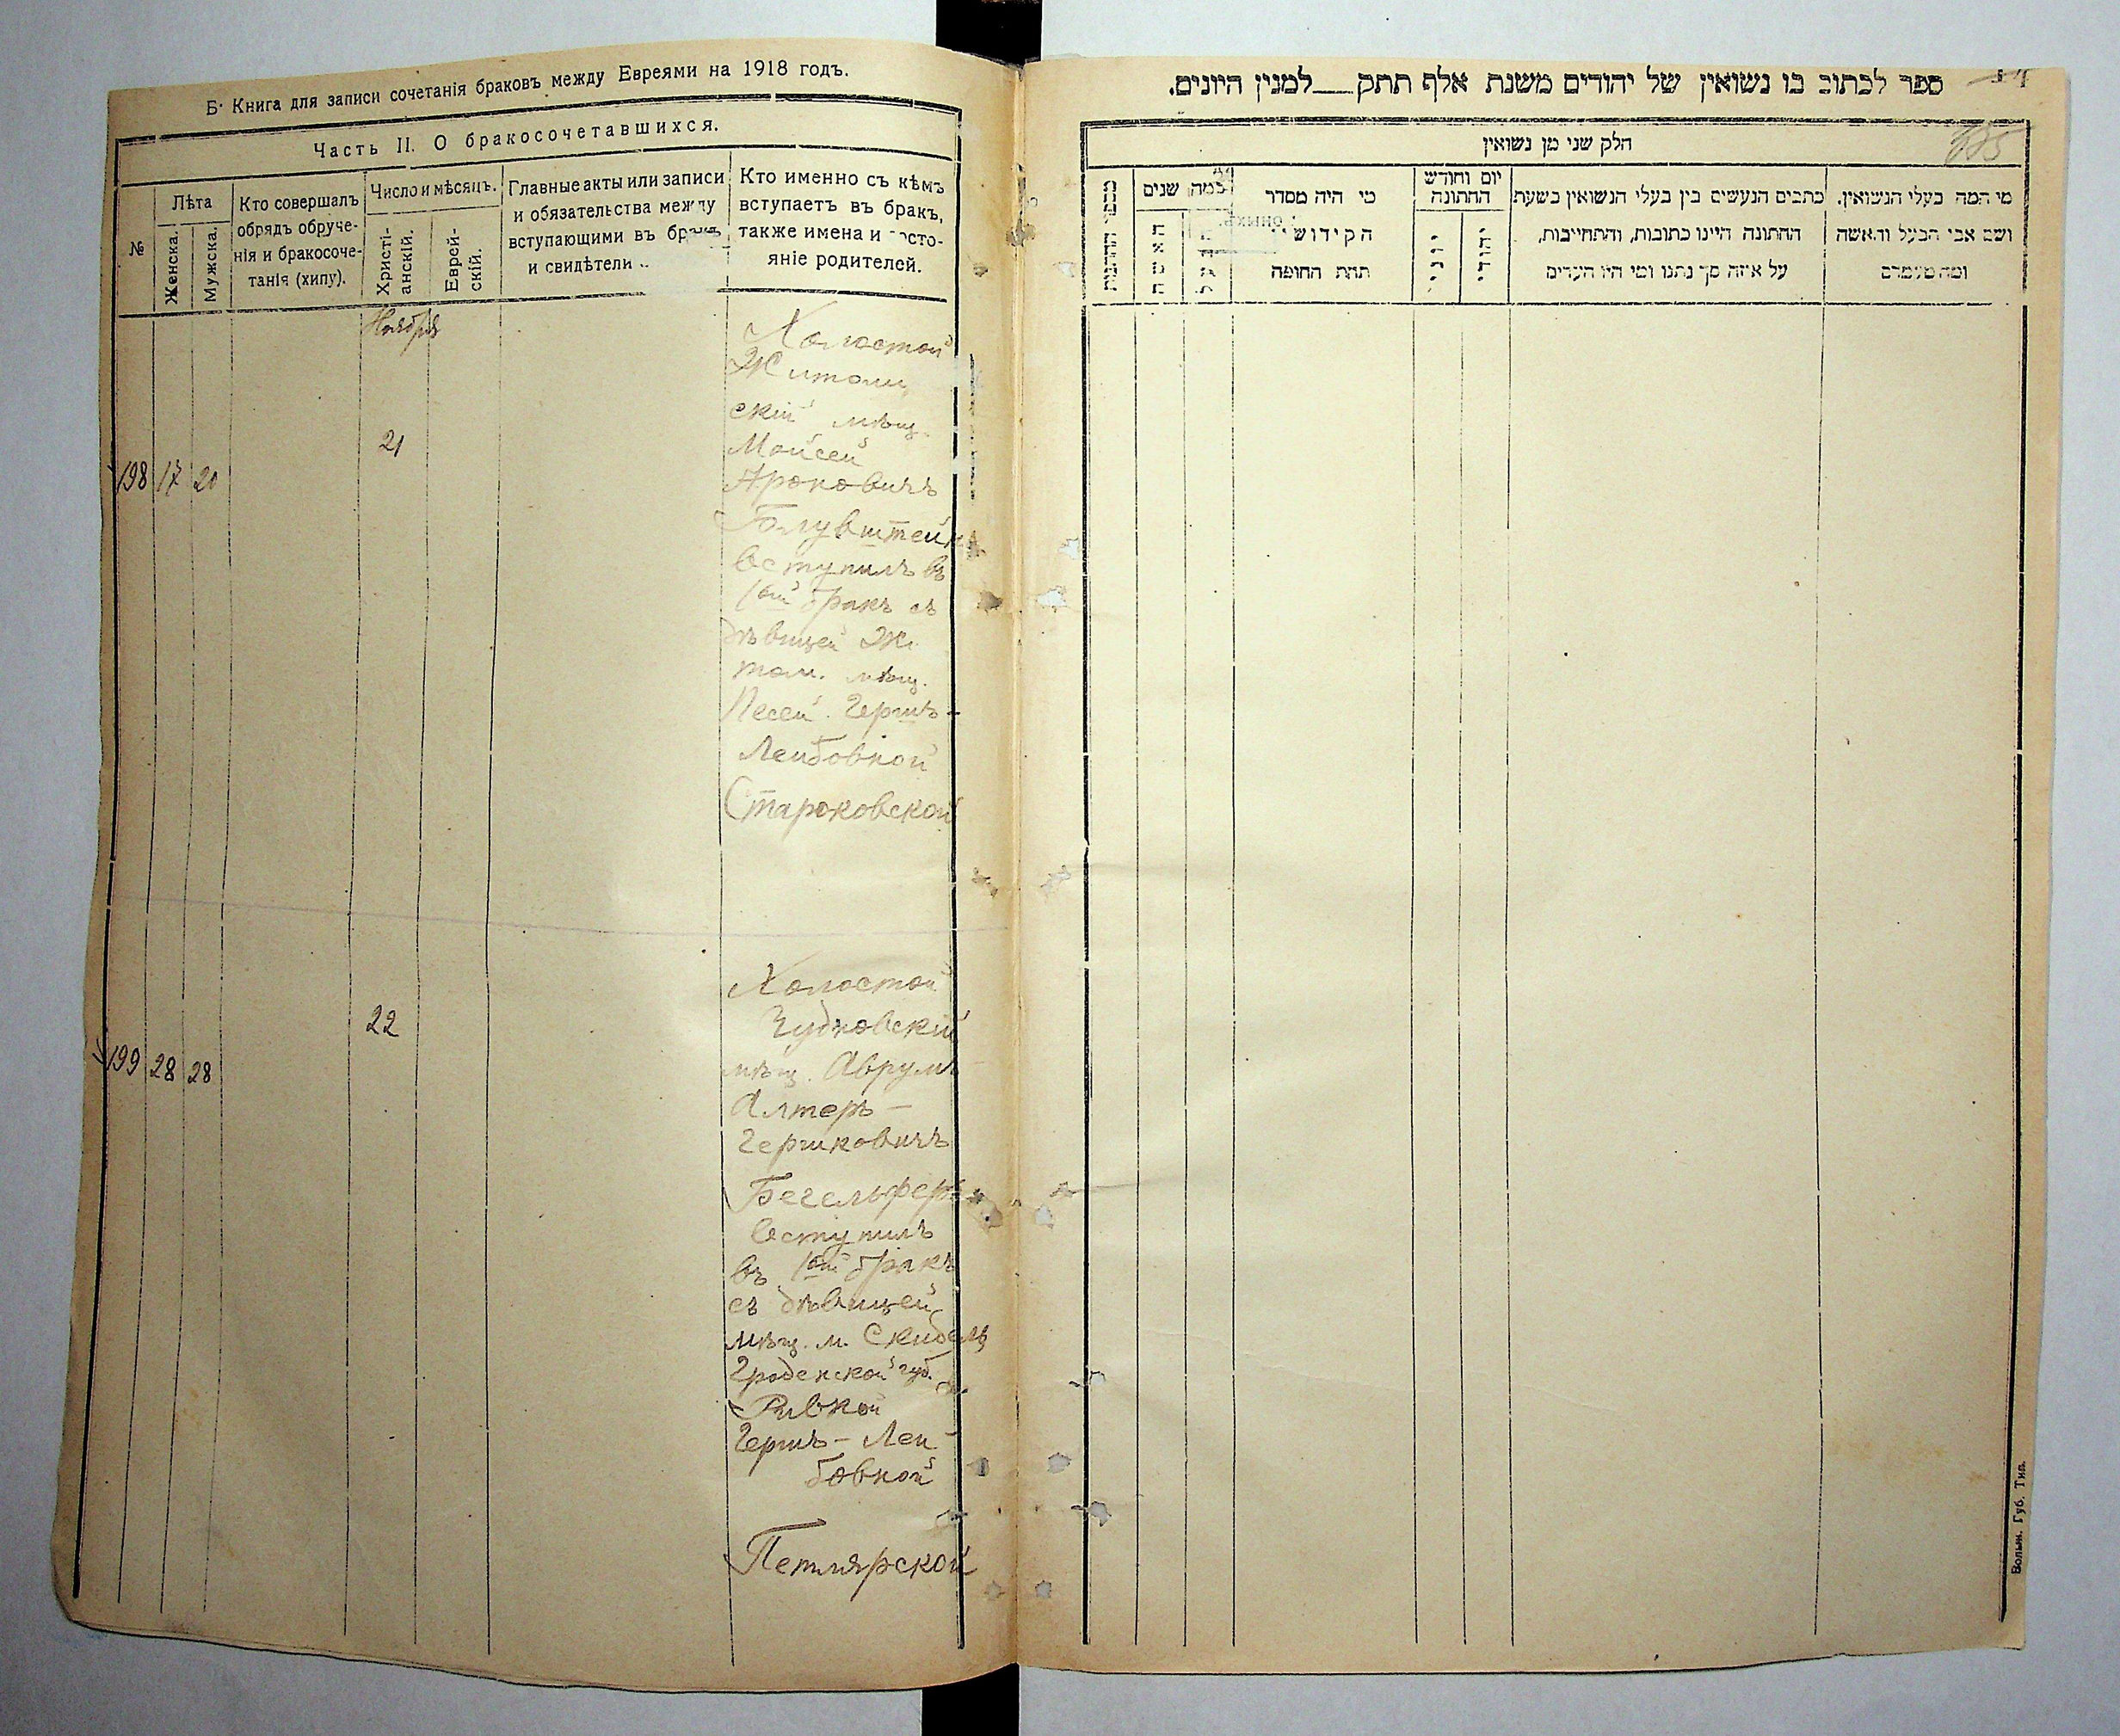 Б. Книга для записи сочетанія браковъ между Евреями на 1918 годъ.
Часть II. О бракосочетавшихся.
№
Лѣта
Женска.
Мужска.
Кто совершалъ
обрядъ обруче-
нія и бракосоче-
танія (хипу).
Число и мѣсяцъ.
Христі-
анскій.
Еврей-
скій.
Главные акты или записи
и обязательства между
вступающими въ бракъ
и свидѣтели
Кто именно съ кѣмъ
вступаетъ въ бракъ,
также имена и состо-
яніе родителей.
Ноября
198 17 20
21
Холостой
Житоми
скій мѣщ.
Мойсей
Ароновичъ
Голувштейнъ
вступилъ въ
1ый бракъ съ
дѣвицей Жи
том. мѣщ.
Песей Гершъ-
Лейбовной
Старковской
199 28 28
22
Холостой
Чудновскій
мѣщ. Аврумъ
Алтеръ-
Гершковичъ
Бегельферъ
вступилъ
въ 1ый бракъ
съ дѣвицей
мѣщ. м. Скидель
Гродненской губ.
Ривкой
Гершъ-Лей
бовной
Петлярской
ספר לכתוב בו נשואין של יהודים משנת אלף תתק__למנין היונים.
685
חלק שני מן נשואין
מספר החתונות
כמה שנים
האשה
מי היה מסדר
הקידושי
תחת החופה
יום וחודש
החתונה
יוני
יהודי
כתבים הנעשים בין בעלי הנשואין בשעת
החתונה היינו כתובות, והתחייבות,
על איזה סך נתנו ומי היו העדים
מי המה בעלי הנשואין.
ושם אבי הבעל והאשה
ומה מעמדם
Волын. Губ. Тип.